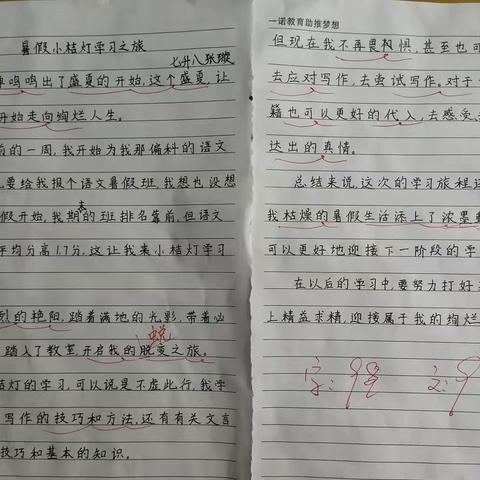 暑假小桔灯学习之旅
七升八张璇
鸣鸣出了盛夏的开始,这个盛夏,让
开始走向绚烂人生。
前的一周,我开始为我那偏科的语文
要给我报个语文暑假班,我想也没想
假开始,我期
末
的班排名靠前,但语文
平均分高1.7分,这让我来小桔灯学习
烈的艳阳,踏着满地的光影,带着必
蜕
踏入了教室,开启我的脱变之旅。
桔灯的学习,可以说是不虚此行,我学
写作的技巧和方法,还有有关文言
技巧和基本的知识。
一诺教育助推梦想
但现在我不再畏惧,甚至也可
去应对写作,去尝试写作。对于
籍也可以更好的代入,去感受
达出的真情。
总结来说,这次的学习旅程
我枯燥的暑假生活添上了浓墨
可以更好地迎接下一阶段的学
在以后的学习中,要努力打好
上精益求精,迎接属于我的绚烂
字:
文: